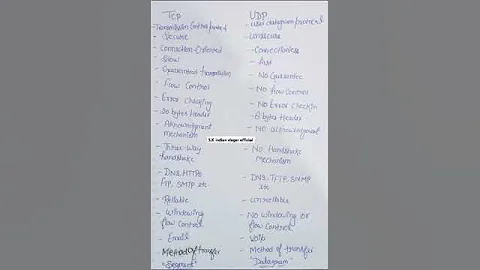 TCP
- Transmission Control protocol
- Secure
- Connection-Oriented
- Slow
- Guaranteed Transmission
- Flow Control
- Error Checking
- 20 bytes Header
- Acknowledgment
mechanism
- Three-way
handshake
- DNS, HTTPS
FTP, SMTP etc
- Reliable
- Windowing
flow Control
- Email
Method of transfer
"Segment"
UDP
- User datagram protocol
- Unsecure
- Connectionless
- fast
- No Guarantee
- No flow Control
- No Error Checkin
- 8 bytes Header
- No acknowledgment
- No Handshake
Mechanism
- DNS, TFTP, SNMP
etc
- Unreliable
- No windowing or
flow Control
- VOIP
- Method of transfer
"Datagram"
S.K indian vlogar official